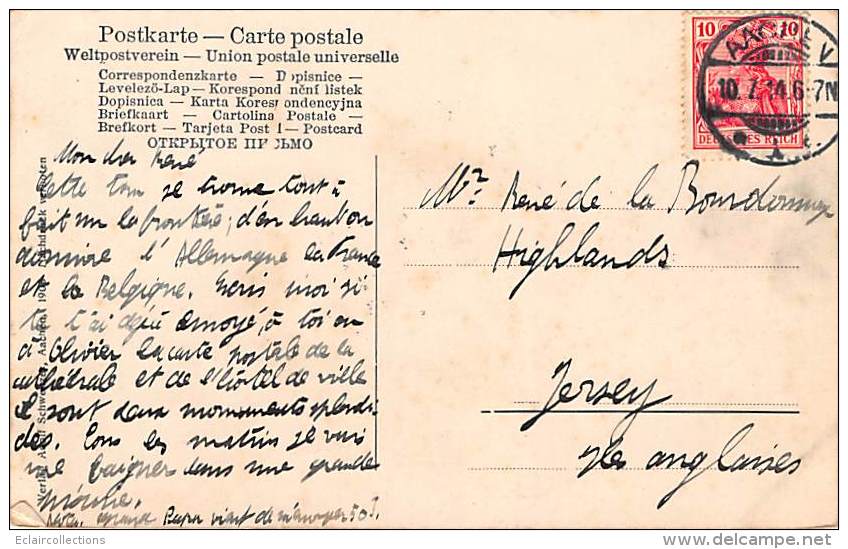 Postkarte — Carte postale
Weltpostverein — Union postale universelle
Correspondenzkarte — Dopisnice —
Levelező-Lap — Korespond nční lístek
Dopisnica — Karta Korespondencyjna
Briefkaart — Cartolina Postale —
Brefkort — Tarjeta Post l — Postcard
ОТКРЫТОЕ ПИСЬМО
10 10
AACHEN
10.7.14.6-7N
DEUTSCHES REICH
Mon cher René
Cette tour se trouve tout à
fait sur la frontière, d'en haut on
domine l'Allemagne la France
et la Belgique. Ecris moi si
je t'ai déjà envoyé, à toi ou
à Olivier la carte postale de la
cathédrale et de l'hôtel de ville
ce sont deux monuments splendi-
des. Tous les matins je vais
me baigner dans une grande
piscine.
Grand Papa vient de m'envoyer 50
Mr. René de la Bourdonnaye
Highlands
Jersey
Iles anglaises
Verlag Adolf Schweitzer, Aachen. Nachdruck verboten
Eclaircollections
delcampe.net